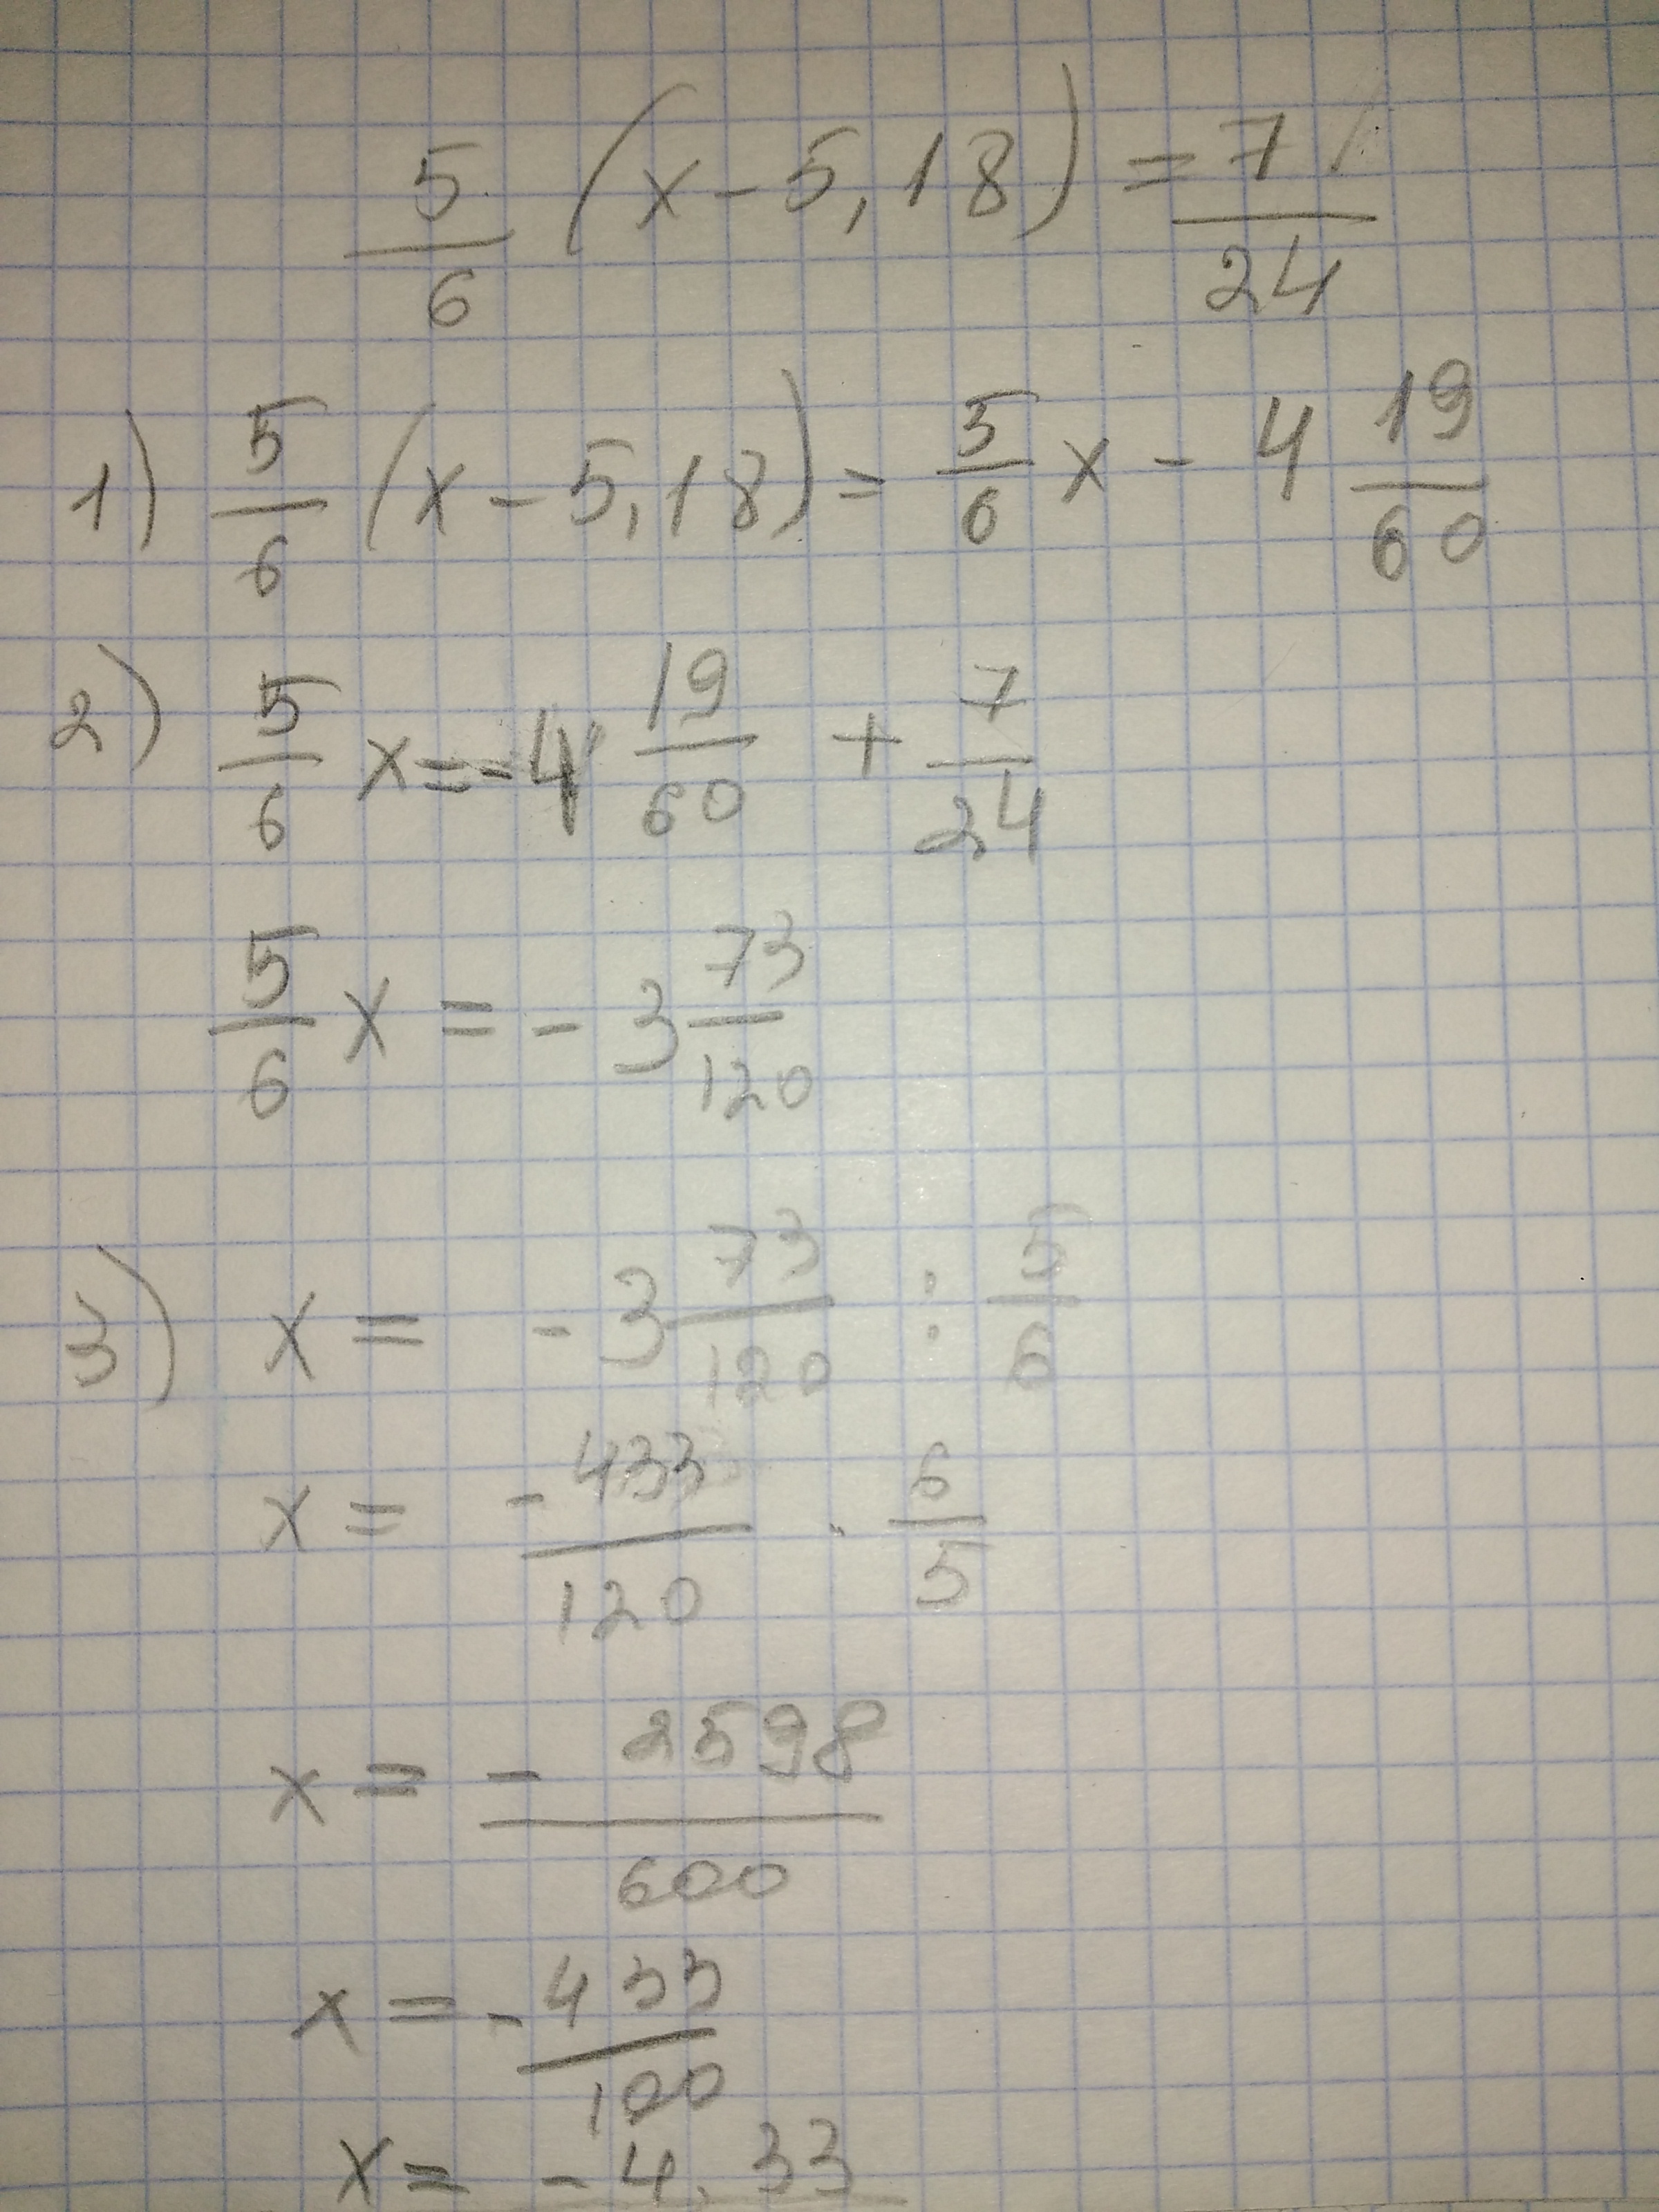 5/6 (x - 5,18) = 7/24
1) 5/6 (x - 5,18) = 5/6 x - 4 19/60
2) 5/6 x = - 4 19/60 + 7/24
5/6 x = - 3 73/120
3) x = - 3 73/120 : 5/6
x = -433/120 · 6/5
x = - 2598/600
x = -433/100
x = - 4,33